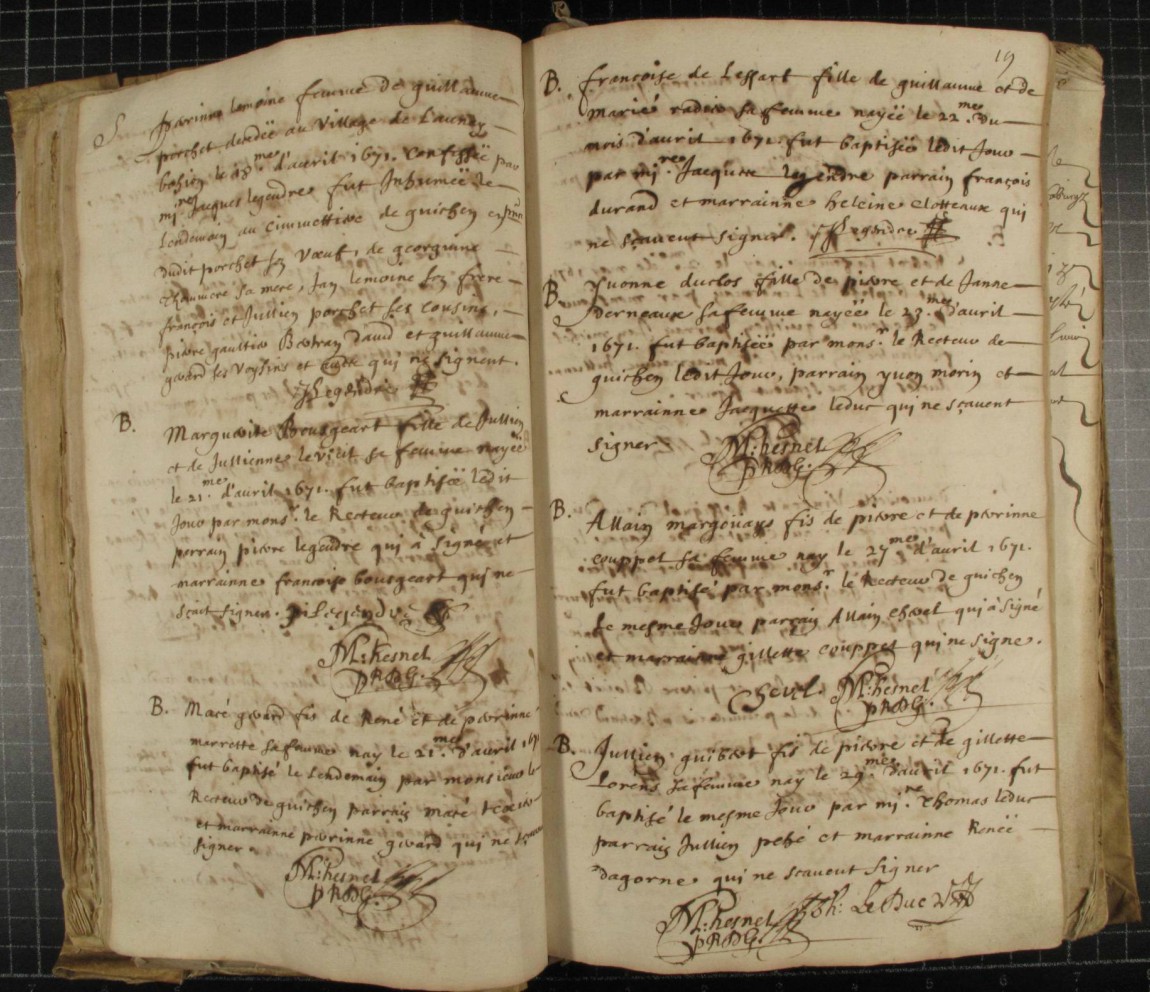 S. Perrinne Lemoine femme de guillaume
porchet decedeë au village de Launay
le 18.me d'avril 1671. Confessëe par
mi.re Jacques legendre fut Inhumeë le
Lendemain au Cimmettiere de guichen
dudit porchet son Vœuf, de georginne
sa mere, Jan lemoine son frere
françois et Jullien porchet ses cousins,
pierre gaultier Bertran Daud et guillaume
gerard ses Voysins et qui ne signent.
J Legendre
B. Marguerite Bourgeart fille de Jullien
et de Jullienne sa femme nayeë
le 21.me d'avril 1671. fut baptiseë ledit
Jour par mons.r le Recteur de guichen
parrain pierre legendre qui à signé et
marrainne françoise bourgeart qui ne
sçait signer. P: Legendre
M: hesnel
P R D G.
B. Macé gerard fis de René et de perrinne
marrette sa femme nay le 21.me d'avril 1671
fut baptisé le Lendemain par monsieur le
Recteur de guichen parrain macé
et marrainne perrinne gerard qui ne
signer.
M: hesnel
P R D G.
19
B. françoise de Lessart fille de guillaume et de
marie radin sa femme nayeë le 22.me du
mois d'avril 1671. fut baptiseë ledit Jour
par mi.re Jacques legendre parrain françois
durand et marrainne heleine Clotteaux qui
ne sçavent signer. J Legendre
B. Yvonne duclos fille de pierre et de Janne
derneaux sa femme nayeë le 23.me d'avril
1671. fut baptiseë par mons.r le Recteur de
guichen ledit Jour, parrain yvon morin et
marrainne Jacquette leduc qui ne sçavent
signer
M: hesnel
P R D G.
B. Allain margoüays fis de pierre et de perrinne
couppel sa femme nay le 27.me d'avril 1671.
fut baptisé par mons.r le Recteur de guichen
le mesme Jour parrain Allain Chevel qui à signé
et marrainne gillette couppel qui ne signe.
Chevel. M: hesnel
P R D G.
B. Jullien guibert fis de pierre et de gillette
Lorens sa femme nay le 29.me d'avril 1671. fut
baptisé le mesme Jour par mi.re Thomas leduc
parrain Jullien pebé et marrainne Reneë
dagorne qui ne scavent signer
M: hesnel Th: Le Duc
P R D G.